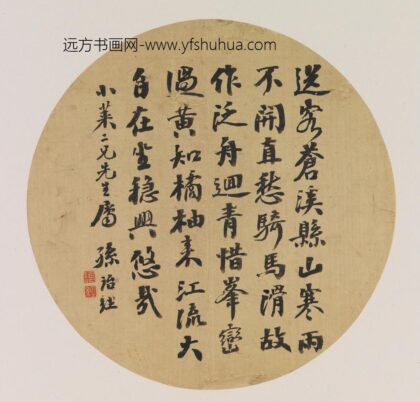 远方书画网-www.yfshuhua.com
送客蒼溪縣山寒雨
不開直愁騎馬滑故
作泛舟迴青惜峯巒
過黃知橘柚来江流大
自在坐穩興悠哉
小萊二兄先生屬
孫詒經